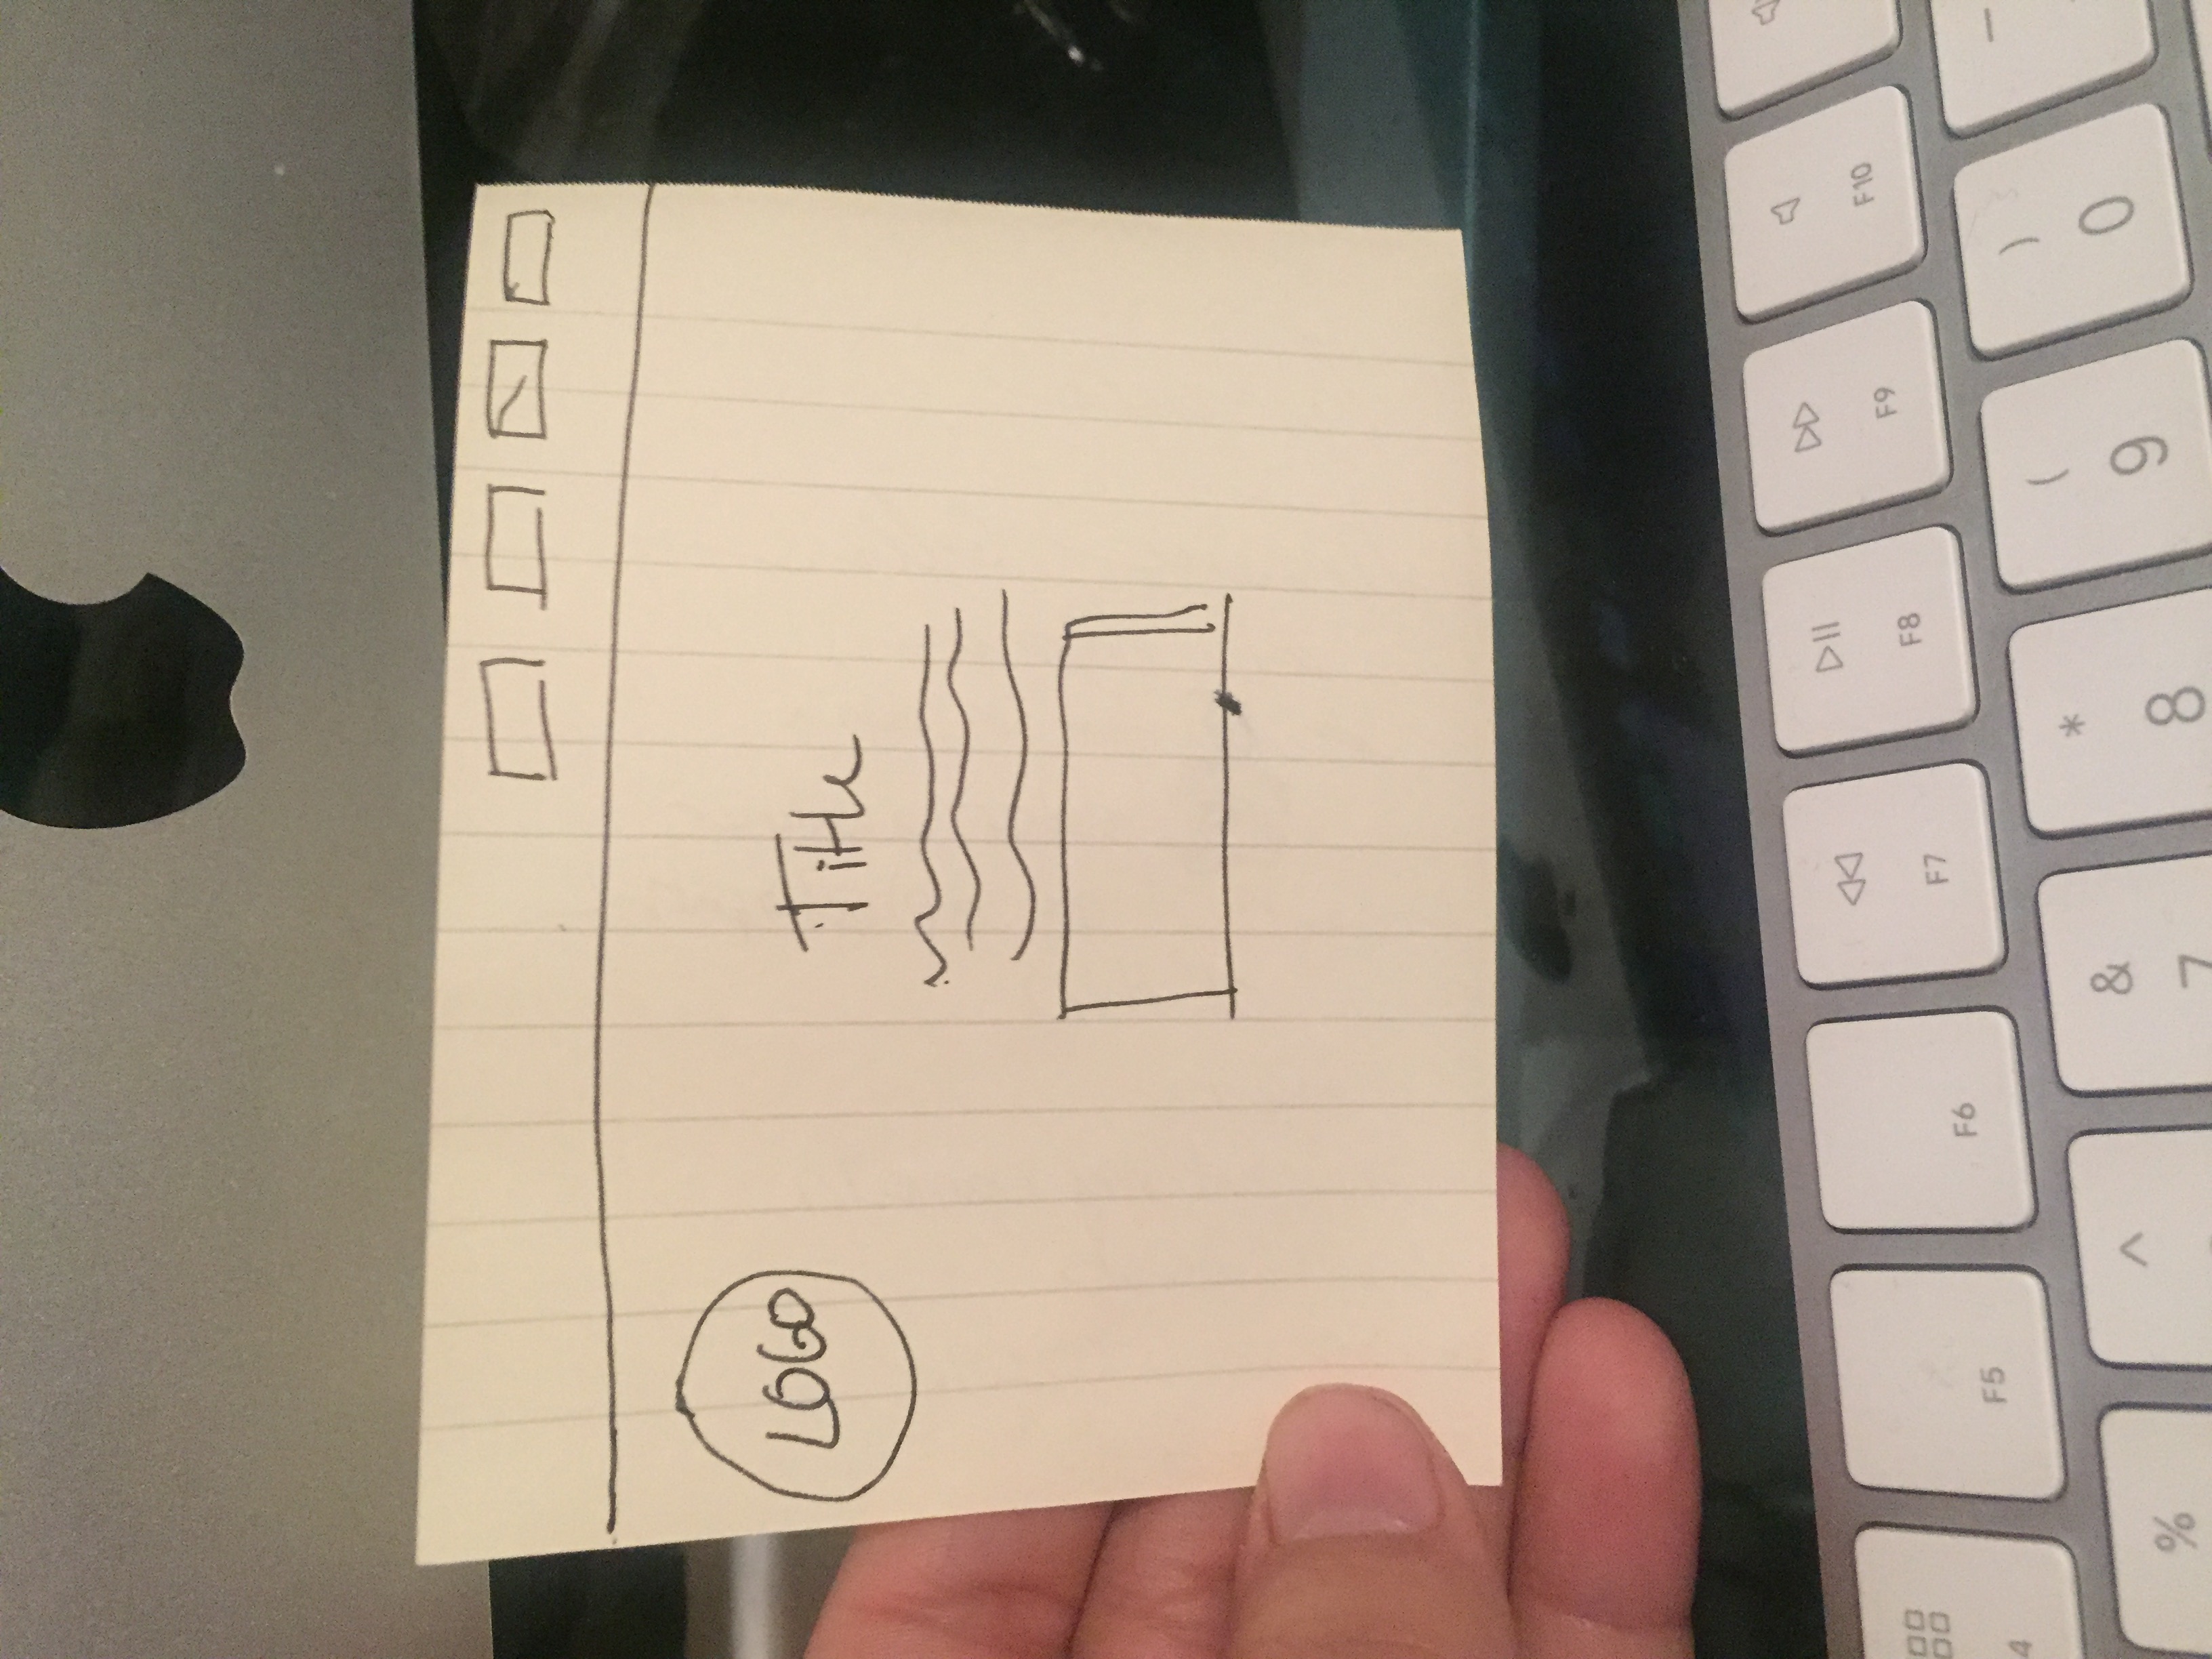 LOGO
Title
4
F5
F6
F7
F8
F9
F10
%
^
&
7
*
8
(
9
)
0